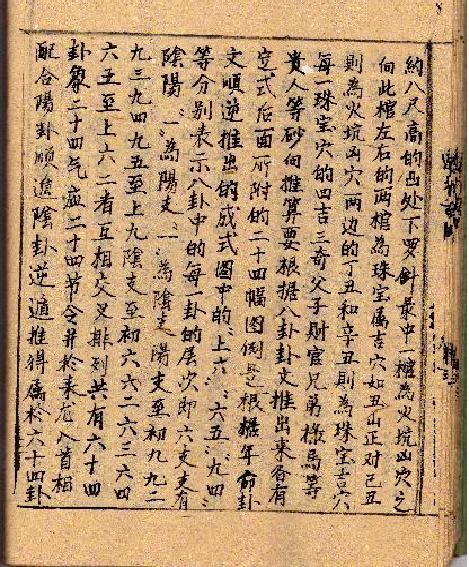 約八尺高的凸处下罗針最中一棺為火坑凶穴之
向此棺左右的两棺為珠宝属吉穴如丑山正对己丑
則為火坑凶穴两边的丁丑和辛丑則為珠宝吉穴
每一珠宝穴的四吉三奇父子財官兄弟祿馬等
貴人等砂向推算要根据八卦卦文推出来各有
定式后面所附的二十四幅图例是根据年命卦
文順逆推出的成式图中的上六六五九四
等分别表示八卦中的每一卦的层次即六爻爻有
陰陽為陽爻為陰爻陽爻至初九九二
九三九四九五至上九陰爻至初六六二六三六四
六五至上六二者互相交叉排列共有六十四
卦象二十四气应二十四节令并於表在八首相
配合陽卦順遁陰卦逆遁推得属於六十四卦